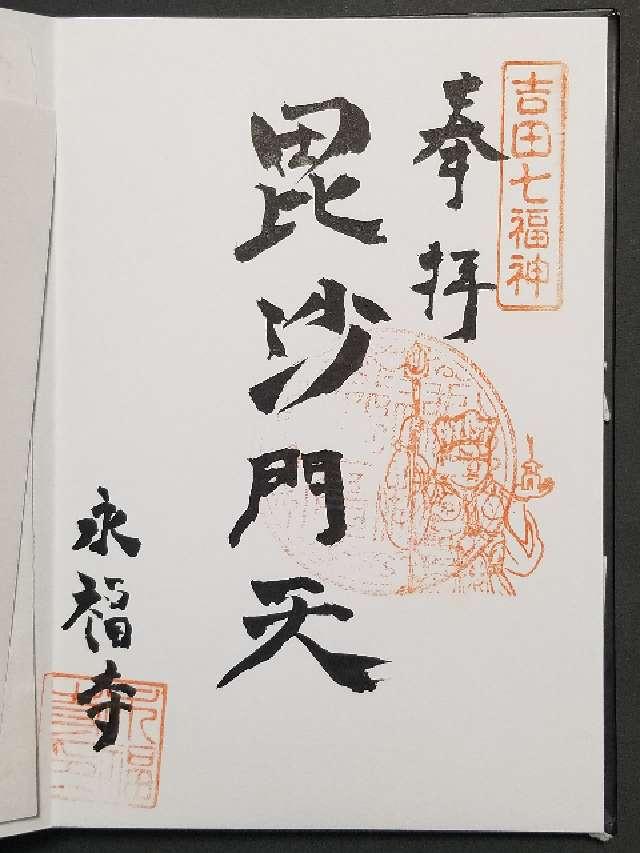 吉田七福神
奉拝
毘沙門天
永福寺